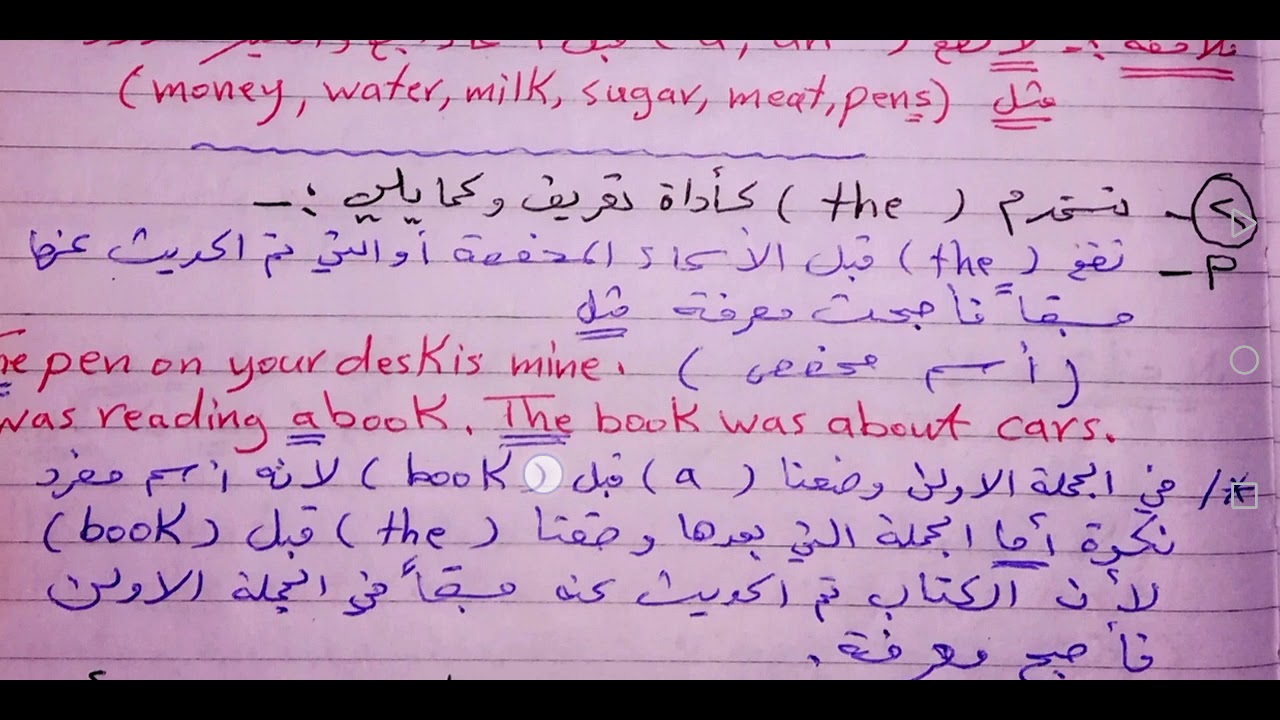 ملاحظة :- لا تقع ( a , an ) قبل
مثل (money, water, milk, sugar, meat, pens)
2- تستخدم ( the ) كأداة تعريف وكما يلي :-
P- تقع ( the ) قبل الأسماء المخصصة أو التي تم الحديث عنها
مسبقاً فأصبحت معرفة مثل
he pen on your desk is mine. ( أسم مخصص )
was reading a book. The book was about cars.
في الجملة الاولى وضعنا ( a ) قبل ( book ) لأنه أسم مفرد
نكرة أما الجملة التي بعدها وضعنا ( the ) قبل ( book )
لأن الكتاب تم الحديث عنه مسبقاً في الجملة الاولى
فأصبح معرفة.